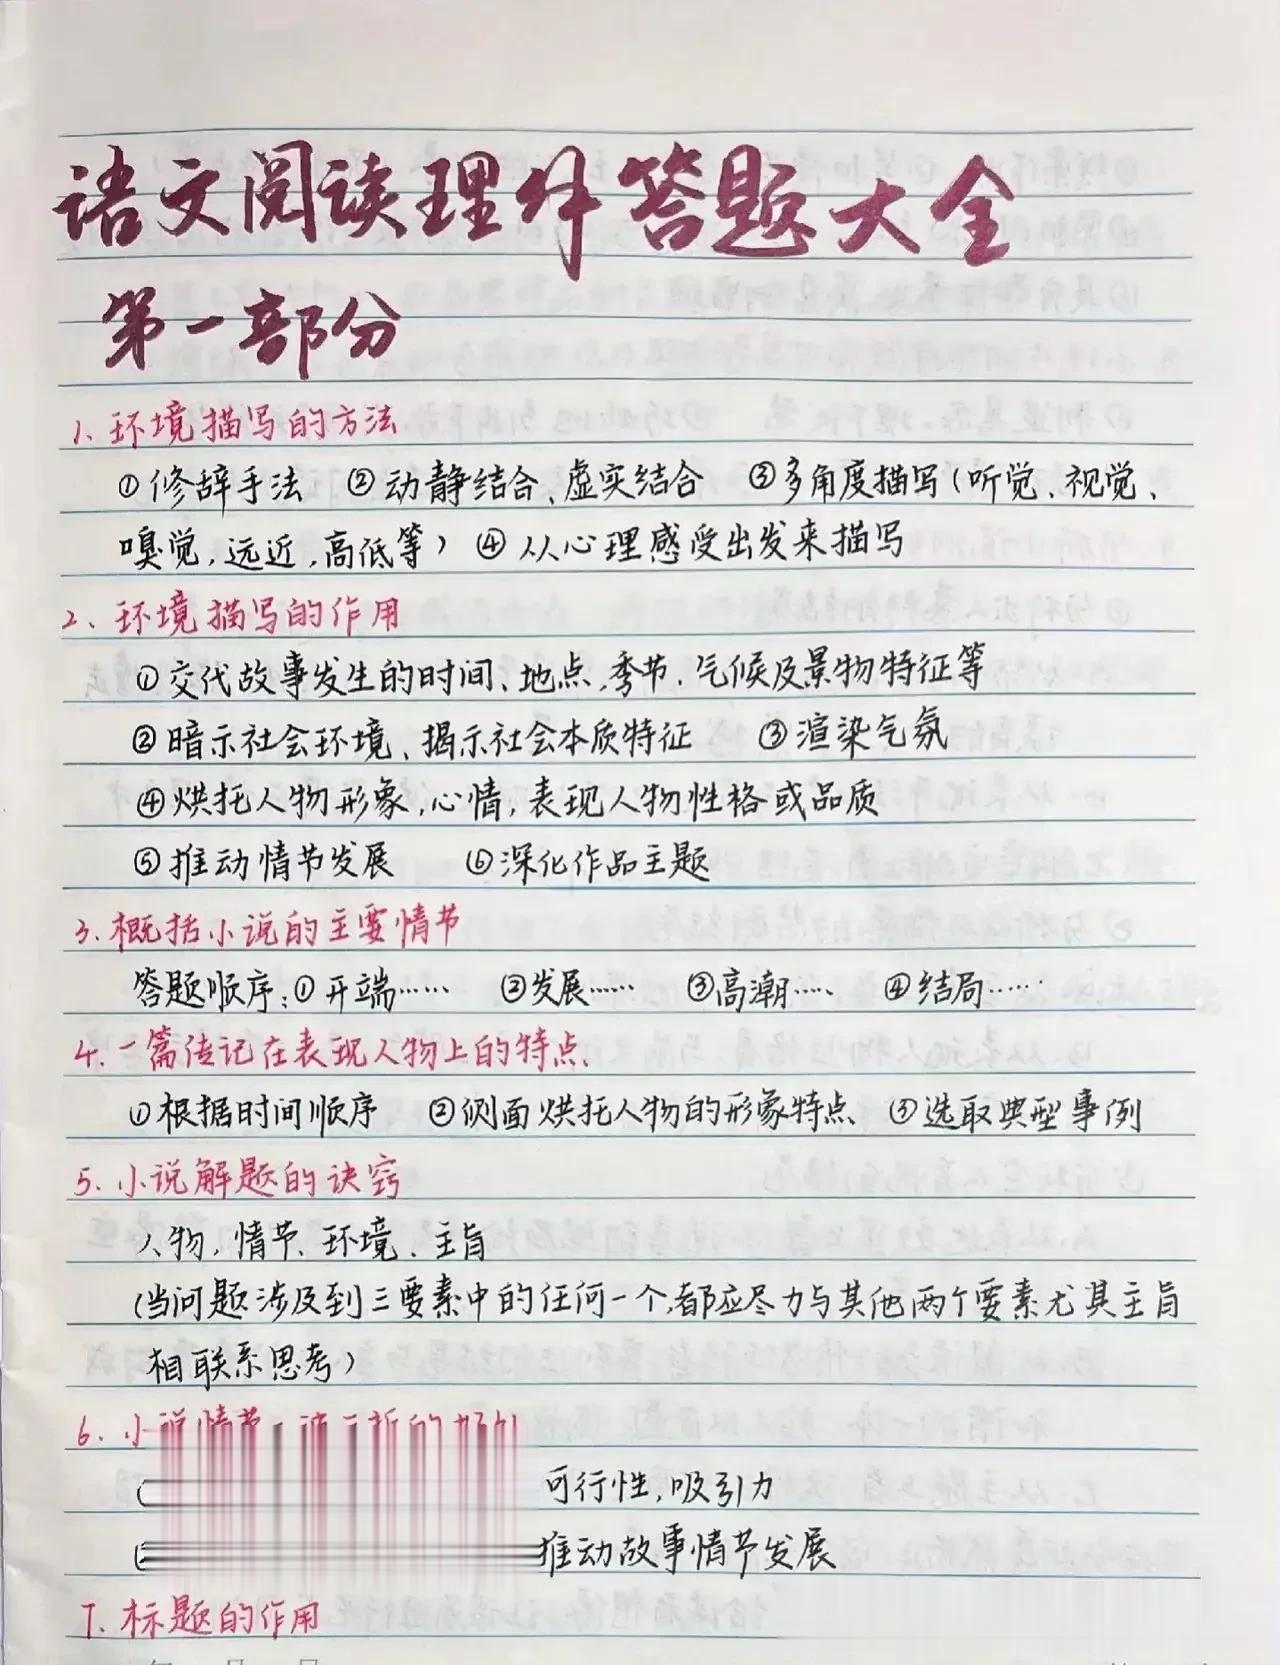 语文阅读理解答题大全
第一部分
1、环境描写的方法
①修辞手法 ②动静结合、虚实结合 ③多角度描写(听觉、视觉、
嗅觉,远近,高低等) ④从心理感受出发来描写
2、环境描写的作用
①交代故事发生的时间、地点,季节、气候及景物特征等
②暗示社会环境、揭示社会本质特征 ③渲染气氛
④烘托人物形象,心情,表现人物性格或品质
⑤推动情节发展 ⑥深化作品主题
3、概括小说的主要情节
答题顺序:①开端…… ②发展…… ③高潮…… ④结局……
4、一篇传记在表现人物上的特点、
①根据时间顺序 ②侧面烘托人物的形象特点 ③选取典型事例
5、小说解题的诀窍
人物,情节、环境、主旨
(当问题涉及到三要素中的任何一个,都应尽力与其他两个要素尤其主旨
相联系思考)
6、小说情节
可行性,吸引力
推动故事情节发展
7、标题的作用